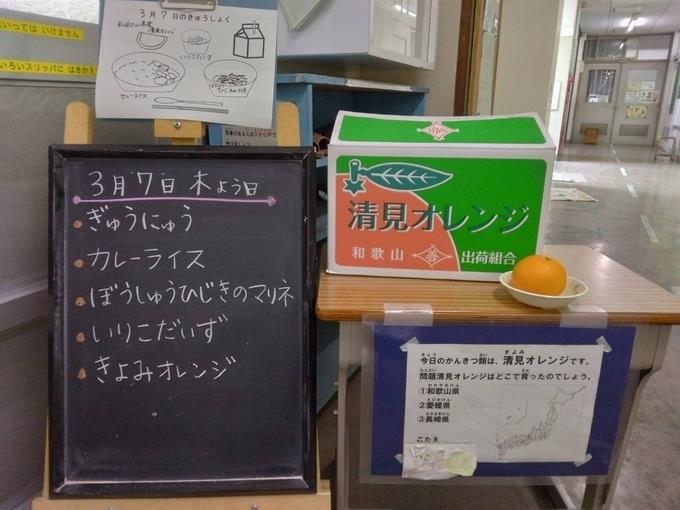 いっては いけません
いろいスリッパに はきかえ
3月7日のきゅうしょく
和歌山県産
清見オレンジ
いりこだいず
カレーライス
ひじきのマリネ
3月7日 木よう日
ぎゅうにゅう
カレーライス
ぼうしゅうひじきのマリネ
いりこだいず
きよみオレンジ
清見オレンジ
和歌山
善
出荷組合
今日のかんきつ類は、清見オレンジです。
問題清見オレンジはどこで育ったのでしょう。
①和歌山県
②愛媛県
③長崎県
こたえ